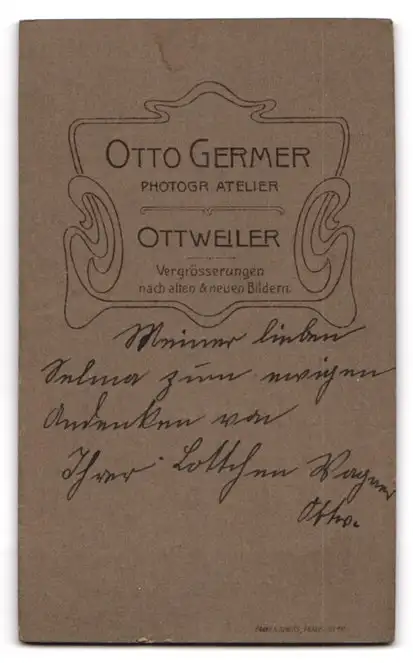 OTTO GERMER
PHOTOGR. ATELIER
OTTWEILER
Vergrösserungen
nach alten & neuen Bildern.
Meiner lieben
Selma zum ewigen
Andenken von
Ihrer Lottchen Wagner
Ottw.